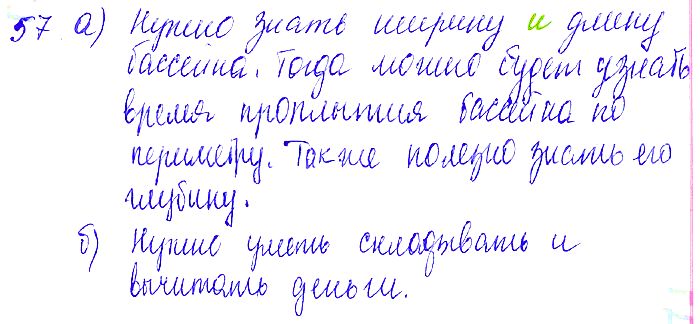 57 а) Нужно знать ширину и длину
бассейна. Тогда можно будет узнать
время проплытия бассейна по
периметру. Также полезно знать его
глубину.
б) Нужно уметь складывать и
вычитать деньги.